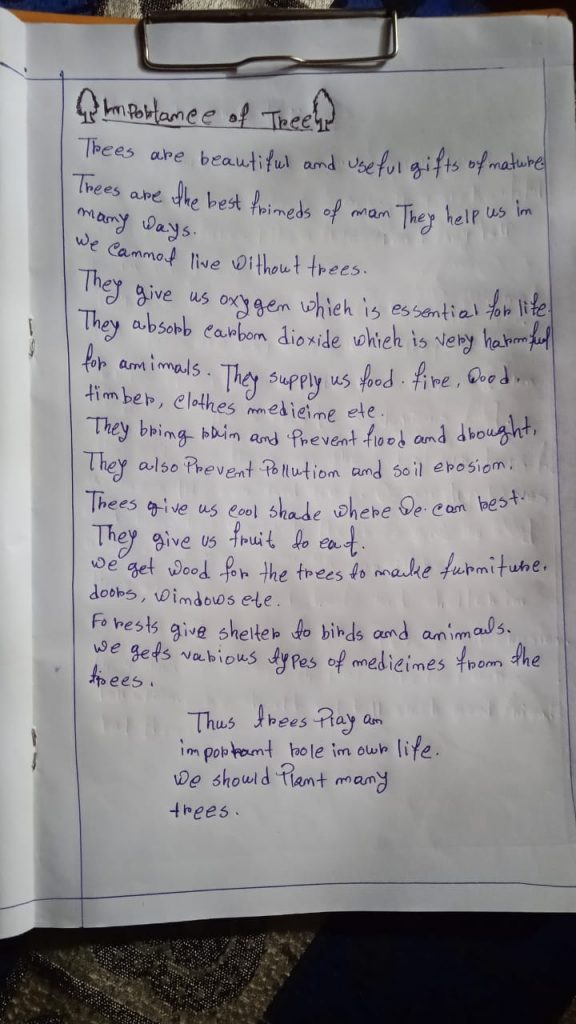 Importance of Tree
Trees are beautiful and useful gifts of nature
Trees are the best frineds of man They help us in
many ways.
We cannot live without trees.
They give us oxygen which is essential for life.
They absorb carbon dioxide which is very harmful
for animals. They supply us food. fire, wood.
timber, clothes medicine etc.
They bring rain and Prevent flood and drought.
They also Prevent Pollution and soil erosion.
Trees give us cool shade where we can rest.
They give us fruit to eat.
We get wood for the trees to make furniture.
doors, windows etc.
Forests give shelter to birds and animals.
We gets various types of medicines from the
trees.
Thus trees Play an
important role in our life.
We should Plant many
trees.